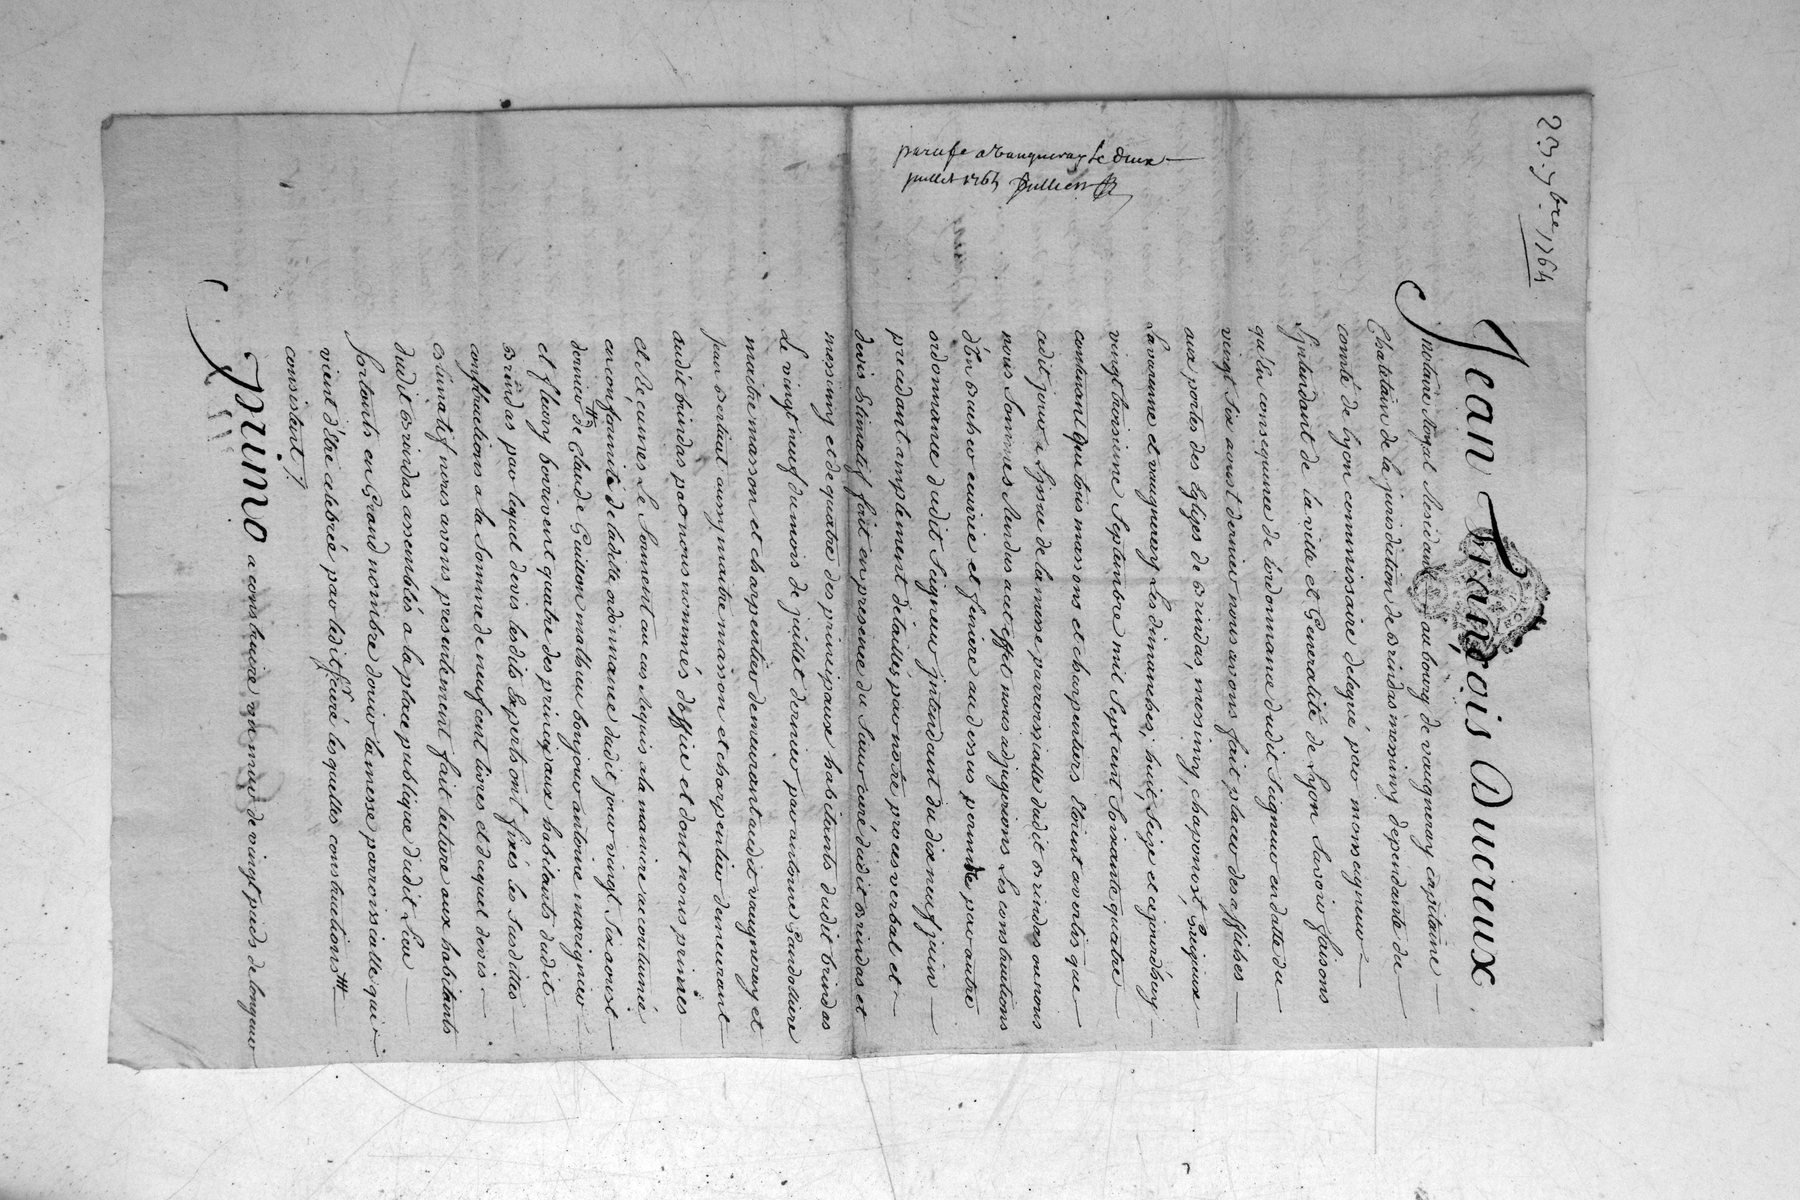 23. 7bre 1764
parafé a Vaugneray le deux
juillet 1765 Jullien
Jean François Ducreux
notaire Royal Résidant au bourg de vaugneray capitaine
Chatelain de la jurisdiction de brindas messimy dependante du
comté de Lyon commissaire delegué par monseigneur
L'Intendant de la ville et Generalité de Lyon Savoir faisons
qu'en consequence de l'ordonnance dudit Seigneur en datte du
vingt six aoust dernier nous avons fait placer des affiches
aux portes des Eglizes de brindas, messimy, chaponost, Grezieux
Lavarenne et vaugneray Les dimanches, huit, seize et cejourd'huy
vingt troisieme Septembre mil Sept cent Soixante quatre
contenant que tous massons et charpentiers Etoient avertis que
cedit jour a L'issue de la messe parroissialle dudit brindas ou nous
nous Sommes Rendus a cet effet nous adjugerions Les constructions
d'Un bucher ecuirie et feniere au dessus permise par autre
ordonnance dudit Seigneur intendant du dix neuf juin
precedant amplement détaillés par notre proces verbal et
devis Estimatif fait en presence du Sieur curé dudit brindas et
messimy et de quatre des principaux habitants dudit brindas
Le vingt neuf du mois de juillet dernier par antoine Gandoliere
maitre masson et charpentier demeurant audit vaugneray et
jean bertaut aussy maitre masson et charpentier demeurant
audit brindas par nous nommés d'office et dont nous primes
et Reçumes Le Serment au cas Requis a la maniere accoutumée
en conformité de ladite ordonnance dudit jour vingt Six aoust
dernier de Claude Guillon mathieu bonjour antoine marignier
et fleury bonvivent quatre des principaux habitants dudit
brindas par lequel devis lesdits Experts ont fixés les Susdittes
constructions a la Somme de neuf cent livres et duquel devis
estimatif nous avons presentement fait lecture aux habitants
dudit brindas assemblés a la place publique dudit Lieu
Sortants en Grand nombre d'ouir la messe parroissialle qui
vient d'être celebrée par ledit Sr curé lesquelles constructions
consistent
primo a construire un mur de vingt pieds de longeur